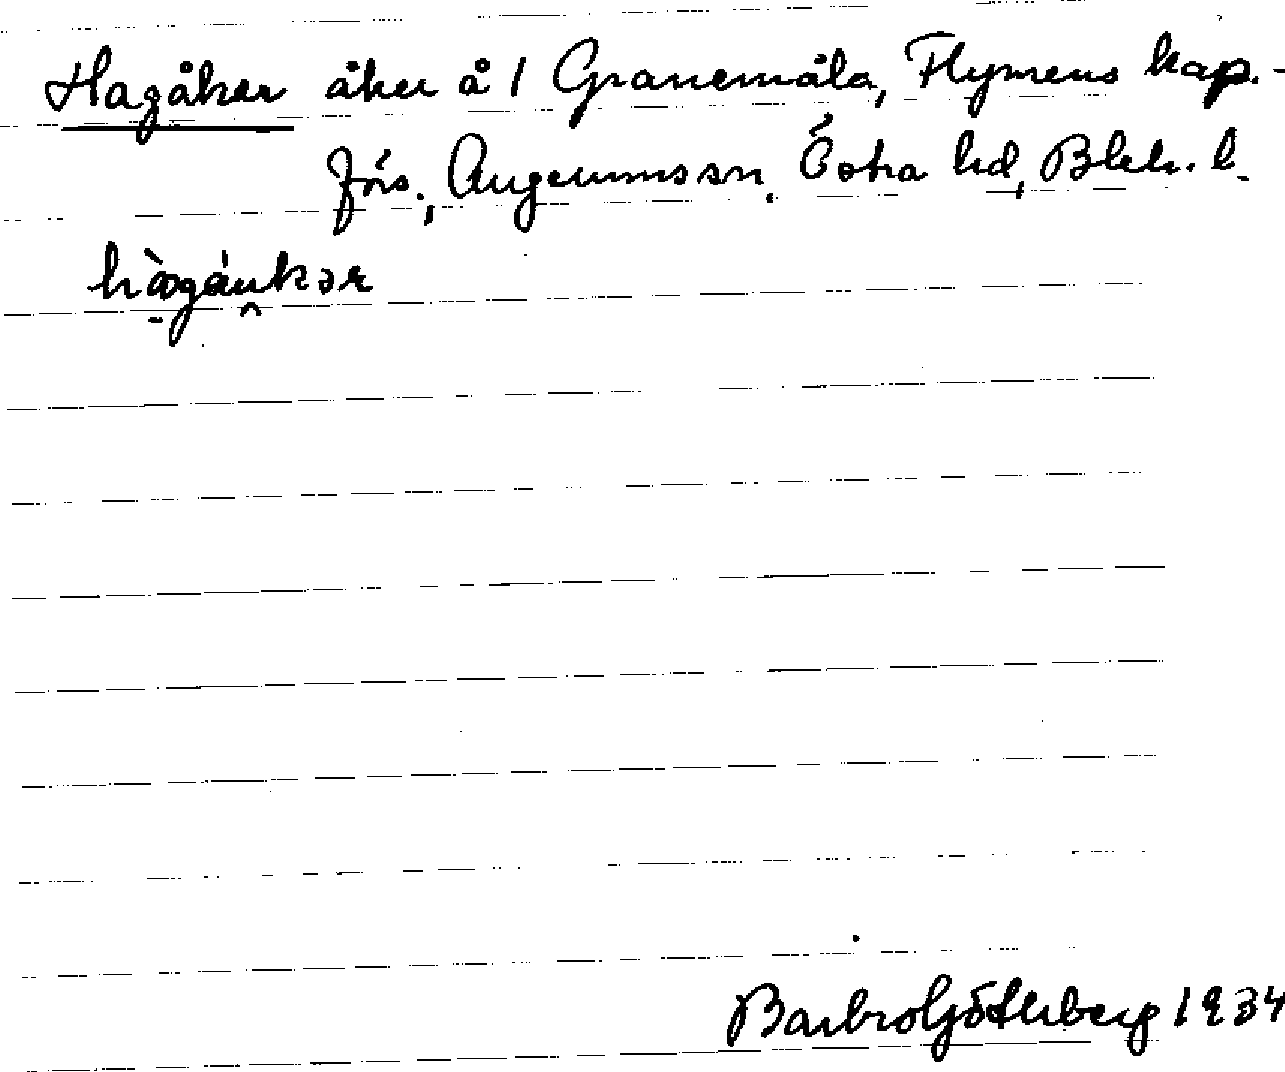 Hagåker åker å 1 Granemåla, Flymens kap.-
förs., Augerumssn, Östra hd, Blek. l.
hàgáukər
Barbro Götherberg 1934